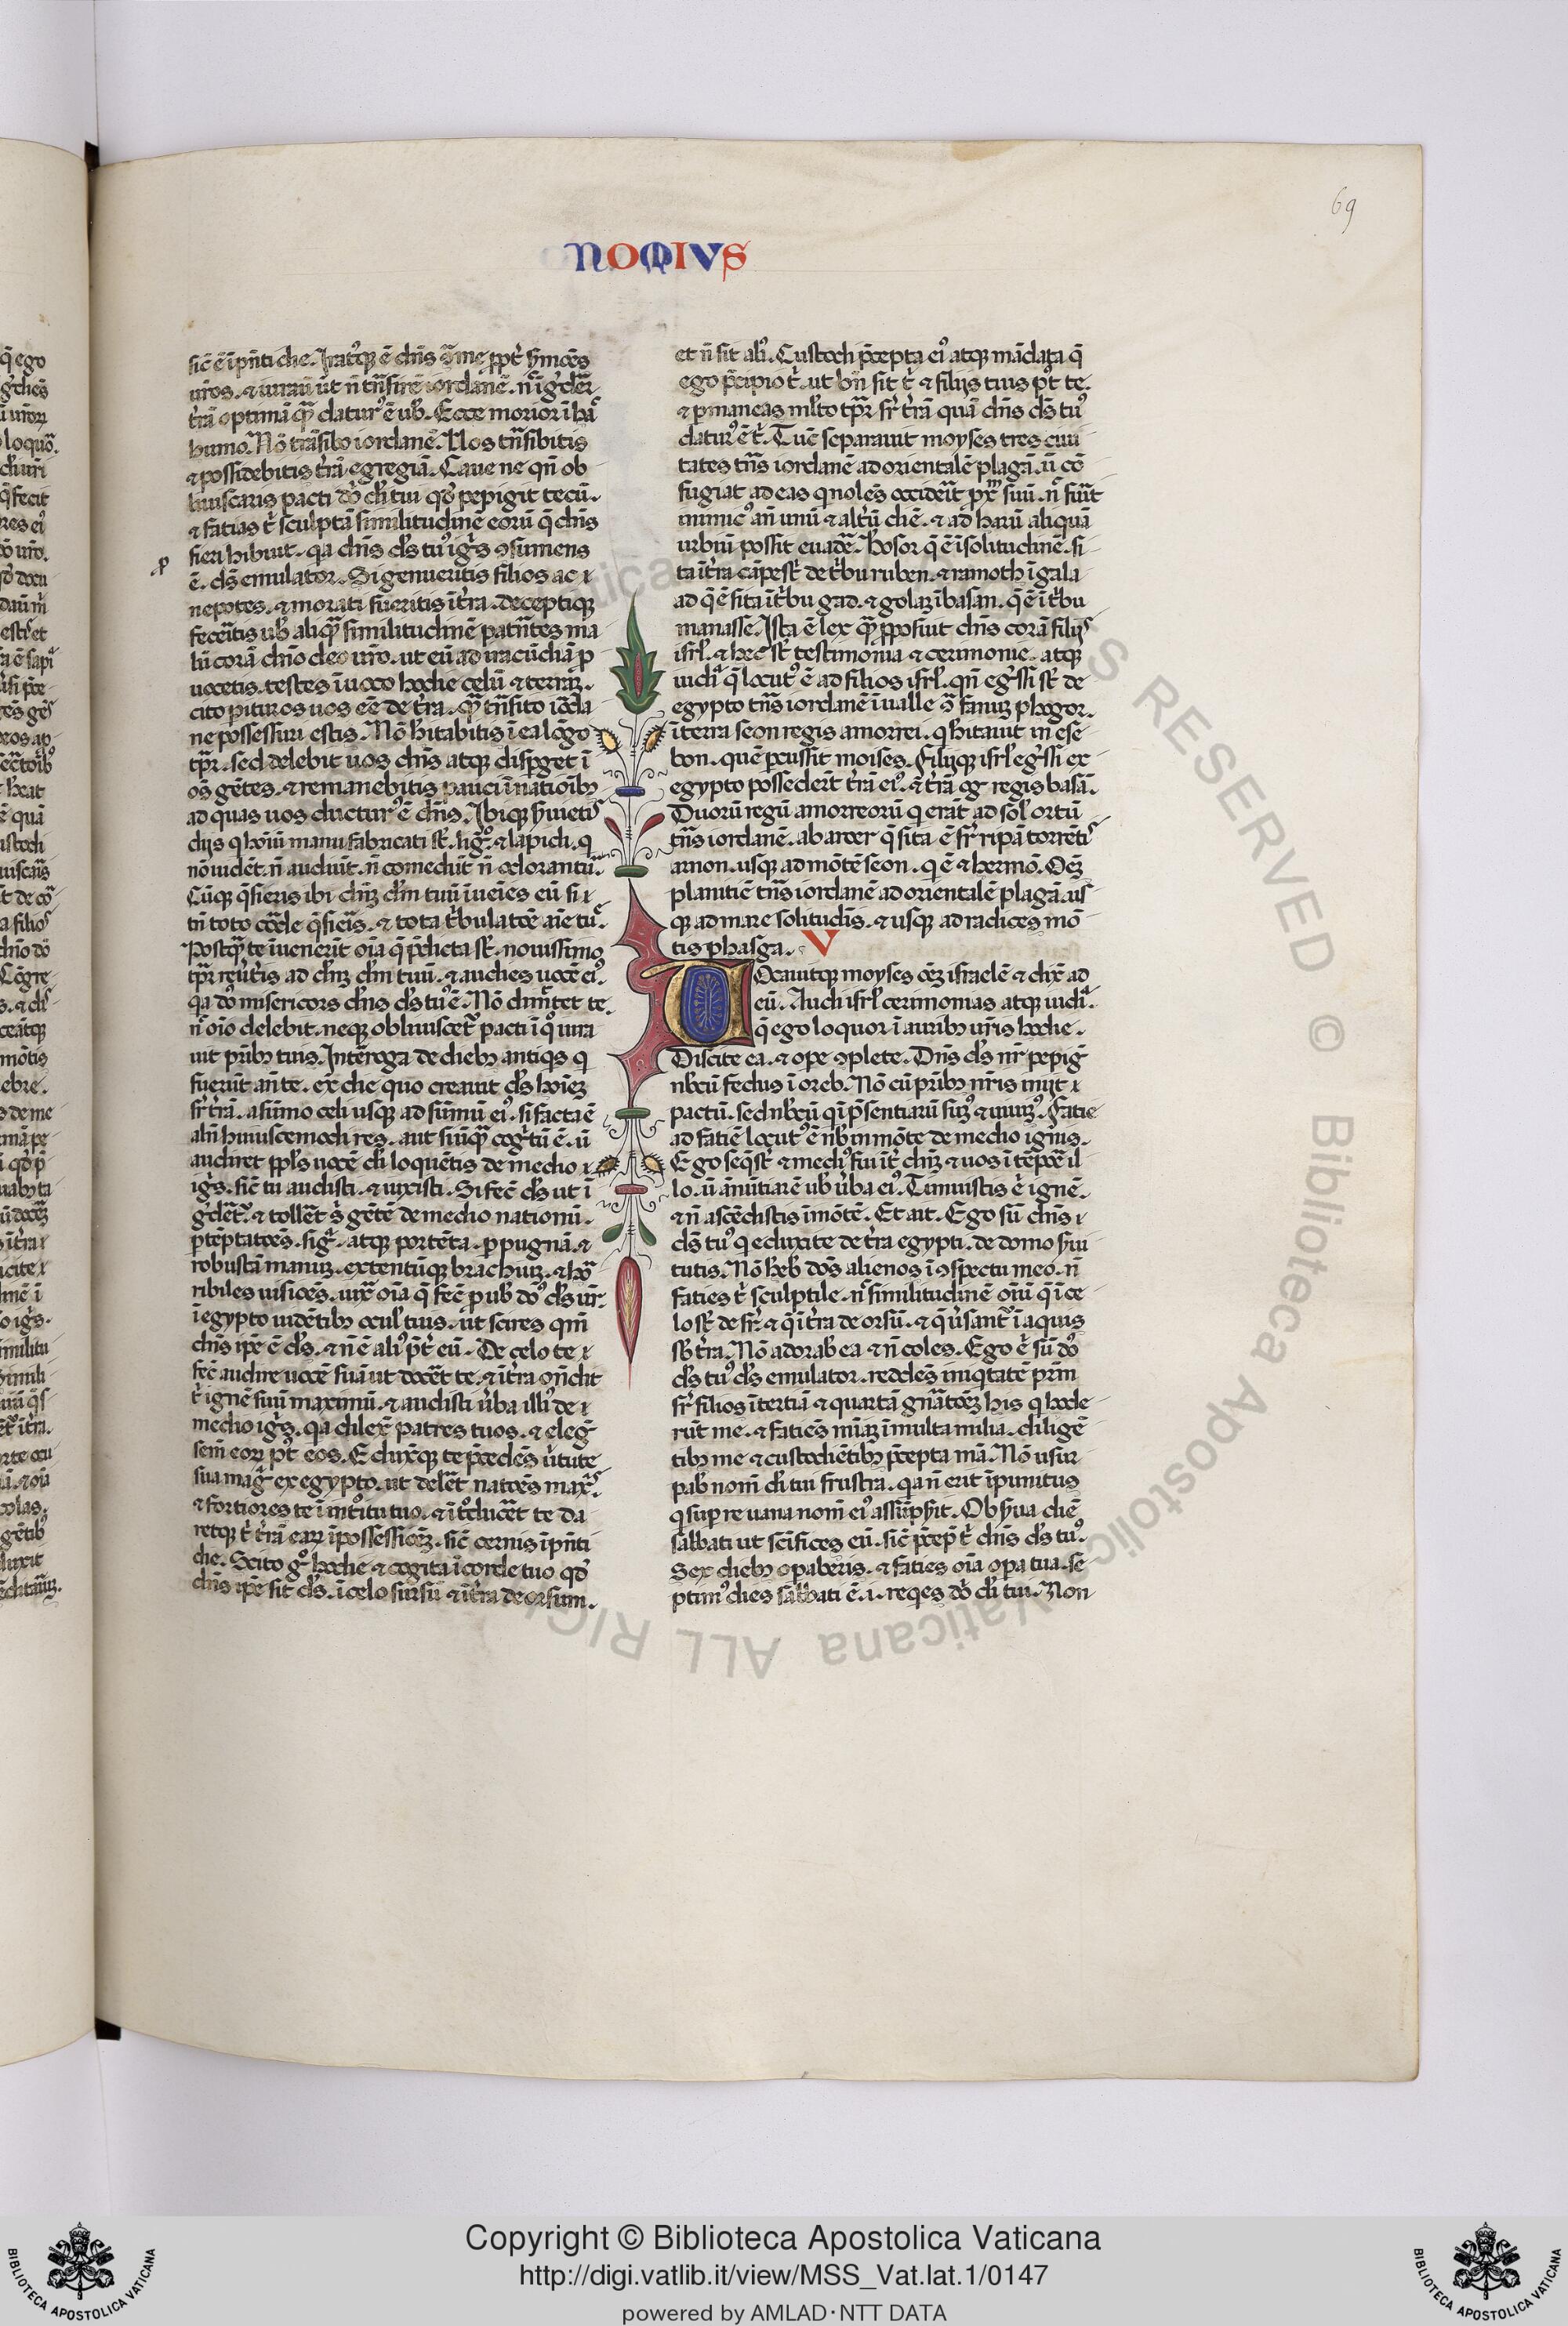 69
NOMIVS
sic̄ ē ip̄nti die. Iratusq; ē dn̄s ꝯ̄ me ꝓpt̄ s̄mōēs
ur̄os. ⁊ iurauit ut n̄ tn̄sirē iordanē. n̄ īg̊der̄
t̄rā optimā qꝫ datur⁹ ē ub̄. Ecce morior ī hāc
humo. Nō trāsibo iordanē. Uos tn̄sibitis
⁊ possidebitis t̄rā egregiā. Caue ne qn̄ ob
liuiscaris pacti dn̄i di tui qd̄ pepigit tecū.
⁊ fatias t̄ sculptā similitudinē eorū q̄ dn̄s
fieri ꝓhibuit. qa dn̄s ds̄ tu⁹ igīs ꝯsumens
ē. ds̄ emulator. Si genueritis filios ac
nepotes. ⁊ morati fueritis ī t̄ra. deceptiq;
fecītis ub̄ aliqꝫ similitudinē patn̄tes ma
lū corā dn̄o deo ur̄o. ut eū ad iracūdiā ꝓ
uocetis. testes īuoco hodie celū ⁊ terraꝫ.
cito pituros uos eē de t̄ra. qꝫ tn̄sito iorda
ne possessuri estis. Nō hītabitis ī ea lōgo
tpr̄. sed delebit uos dn̄s atq; disp̱get ī
oēs gētes. ⁊ remanebitis pauci ī natiōibꝫ
ad quas uos ductur⁹ ē dn̄s. Ibiq; s̄uietis
diis q̄ hoīū manu fabricati st̄. lig̊. ⁊ lapidi. q̄
nō uidēt. n̄ audiūt. n̄ comedūt n̄ odorantur.
Cūq; q̄sieris ibi dn̄ꝫ dm̄ tuū īueīes eū. si
tn̄ toto corde q̄sieris. ⁊ tota t̄bulatōe aīe tue.
Postqꝫ te īuenerīt oīa q̄ p̄dicta st̄. nouissimo
tpr̄ reūtis ad dn̄ꝫ dm̄ tuū. ⁊ audies uocē ei⁹.
qa d̄s misericors dn̄s ds̄ tu⁹ ē. Nō dimittet te.
n̄ oīo delebit. neq; obliuiscet̄ pacti ī qo iura
uit prib; tuis. Interroga de dieb; antiqs q̄
fuerūt an̄ te. ex die quo creauit ds̄ hoīeꝫ
sr̄ t̄rā. a sūmo celi usq; ad sūmū ei⁹. si facta ē
alīn huiuscemodi res. aut sūqꝫ cog̊tū ē. ū
audiret ppl̄s uocē di loquētis de medio
igīs. sic̄ tu audisti. ⁊ uixisti. Si fec̄ ds̄ ut ī
g̊der̄t. ⁊ tollēt s̄ gētē de medio nationū.
p̱ teptatōēs. sig̊. atq; portēta. p̱ pugnā. ⁊
robustā manuꝫ. extentūq; brachiuꝫ. ⁊ hor
ribiles uisiōes. iux̄ oīa q̄ fec̄ p̱ ub̄ dn̄s ds̄ ur̄.
ī egypto uidētibꝫ ocul̄ tuis. ut scires qm̄
dn̄s ip̄e ē ds̄. ⁊ n̄ ē ali⁹ p̄t̄ eū. De celo te
fec̄ audire uocē suā ut docer̄t te. ⁊ ī t̄ra on̄dit
t̄ ignē suū maximū. ⁊ audisti ūba illi⁹ de
medio igīs. qa dilex̄ patres tuos. ⁊ eleg̊
sem̄ eorꝝ pt̄ eos. Eduxitq; te p̄cedēs ūtute
sua mag̊ ex egypto. ut deler̄t natōēs max̄s.
⁊ fortiores te ī introitu tuo. ⁊ īt̊ducēt te da
retq; t̄ t̄rā earꝝ ī possessiōꝫ. sic̄ cernis īp̄nti
die. Scito g̊ hodie ⁊ cogita ī corde tuo qd̄
dn̄s ip̄e sit ds̄. ī celo sursū ⁊ ī t̄ra deorsum.
et n̄ sit ali⁹. Custodi p̄cepta ei⁹ atq; mādata q̄
ego p̄cipio t̄. ut bn̄ sit t̄ ⁊ filiis tuis pt̄ te.
⁊ p̱maneas ml̄to tpr̄ sr̄ t̄rā quā dn̄s ds̄ tu⁹
datur⁹ ē t̄. Tūc separauit moyses tres ciui
tates tn̄s iordanē ad orientalē plagā. ū cō
fugiat ad eas q̄ nolēs occiderit px̄m suū. n̄ fuit
inimic⁹ an̄ unū ⁊ altū diē. ⁊ ad harū aliquā
urbiū possit euadē. Bosor q̄ ē ī solitudinē. si
ta ī t̄ra cāpest̄ de t̄bu ruben. ⁊ ramoth ī gala
ad q̄ ē sita ī t̄bu gad. ⁊ golaꝫ ī basan. q̄ ē ī t̄bu
manasse. Ista ē lex qꝫ p̱posuit dn̄s corā filiis
isrl̄. ⁊ hec st̄ testimonia ⁊ cerimonie. atq;
iudia q̄ locut⁹ ē ad filios isrl̄. qn̄ eg̊ssi st̄ de
egypto tn̄s iordanē ī ualle ꝯ̄ fanuꝫ phogor.
ī terra seon regis amorrei. q̄ hītauit in ese
bon. quē p̱cussit moises. Filiiq; isrl̄ eg̊ssi ex
egypto possederūt t̄rā ei⁹. ⁊ t̄rā og regis basā.
Duorū regū amorreorū q̄ erāt ad sol̄ ortū
tn̄s iordanē. ab aroer q̄ sita ē sr̄ ripā torrētis
arnon. usq; ad mōtē seon. q̄ ē ⁊ hermō. Oēꝫ
planitiē tn̄s iordanē ad orientalē plagā. us
q; ad mare solitudīs. ⁊ usq; ad radices mō
tis phasga. V
Uocauitq; moyses oēꝫ israelē ⁊ dix̄ ad
eū. Audi isrl̄ cerimonias atq; iudia.
q̄ ego loquor ī auribꝫ ur̄is hodie.
Discite ea. ⁊ ope ꝯplete. Dn̄s ds̄ nr̄ pepig̊
nb̄cū fedus ī oreb. Nō cū prib; nr̄is iniit
pactū. sed nb̄cū qi p̄sentiarū sum⁹ ⁊ uiuim⁹. Fatie
ad fatiē locut⁹ ē nb̄ in mōte de medio ignis.
Ego seq̄st̄ ⁊ medi⁹ fui īt̄ dn̄ꝫ ⁊ uos ī tēpoē il
lo. ū ānūtiarē ub̄ ūba ei⁹. Timuistis ē ignē.
⁊ n̄ ascēdistis ī mōtē. Et ait. Ego sū dn̄s
ds̄ tu⁹ q̄ eduxi te de t̄ra egypti. de domo s̄ui
tutis. Nō heb̄ deos alienos ī ꝯspectu meo. n̄
faties t̄ sculptile. n̄ similitudinē oīū q̄ ī ce
lo st̄ de sr̄. ⁊ q̄ ī t̄ra deorsū. ⁊ q̄ ūsant̄ ī aquis
sb̄ t̄ra. Nō adorab̄ ea ⁊ n̄ coles. Ego ē sū dn̄s
ds̄ tu⁹ ds̄ emulator. reddēs iniqtatē prīm
sr̄ filios ī tertiā ⁊ quartā gnātōꝫ his q̄ ode
rūt me. ⁊ fatiēs mīaꝫ ī multa milia. diligē
tibꝫ me ⁊ custodiētibꝫ p̄cepta mā. Nō usur
pab̄ nom̄ di tui frustra. qa n̄ erit īpunitus
q̄ sup̱ re uana nom̄ ei⁹ assūpsit. Obs̄ua diē
sabbati ut sc̄ifices eū. sic̄ p̄cep̄ t̄ dn̄s ds̄ tu⁹.
Sex dieb; opaberis. ⁊ faties oīa opa tua. se
ptim⁹ dies sabbati ē. i. reqes dn̄i di tui. Non
Copyright © Biblioteca Apostolica Vaticana
http://digi.vatlib.it/view/MSS_Vat.lat.1/0147
powered by AMLAD·NTT DATA
BIBLIOTECA APOSTOLICA VATICANA
BIBLIOTECA APOSTOLICA VATICANA